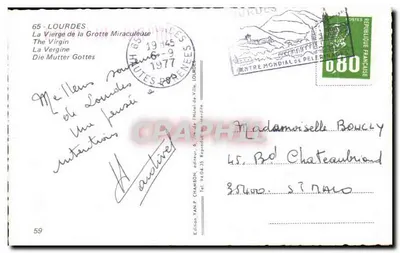 65 - LOURDES
La Vierge de la Grotte Miraculeuse
The Virgin
La Vergine
Die Mutter Gottes
19H45
6-9
1977
HAUTES PYRENEES
CENTRE MONDIAL DE PELERINAGE
0,80
REPUBLIQUE FRANCAISE
Meilleurs souvenirs
de Lourdes
Une pensée
intentions
Mademoiselle BOUCLY
45. Bd Chateaubriand
35400. ST MALO
CPARPHIL
59